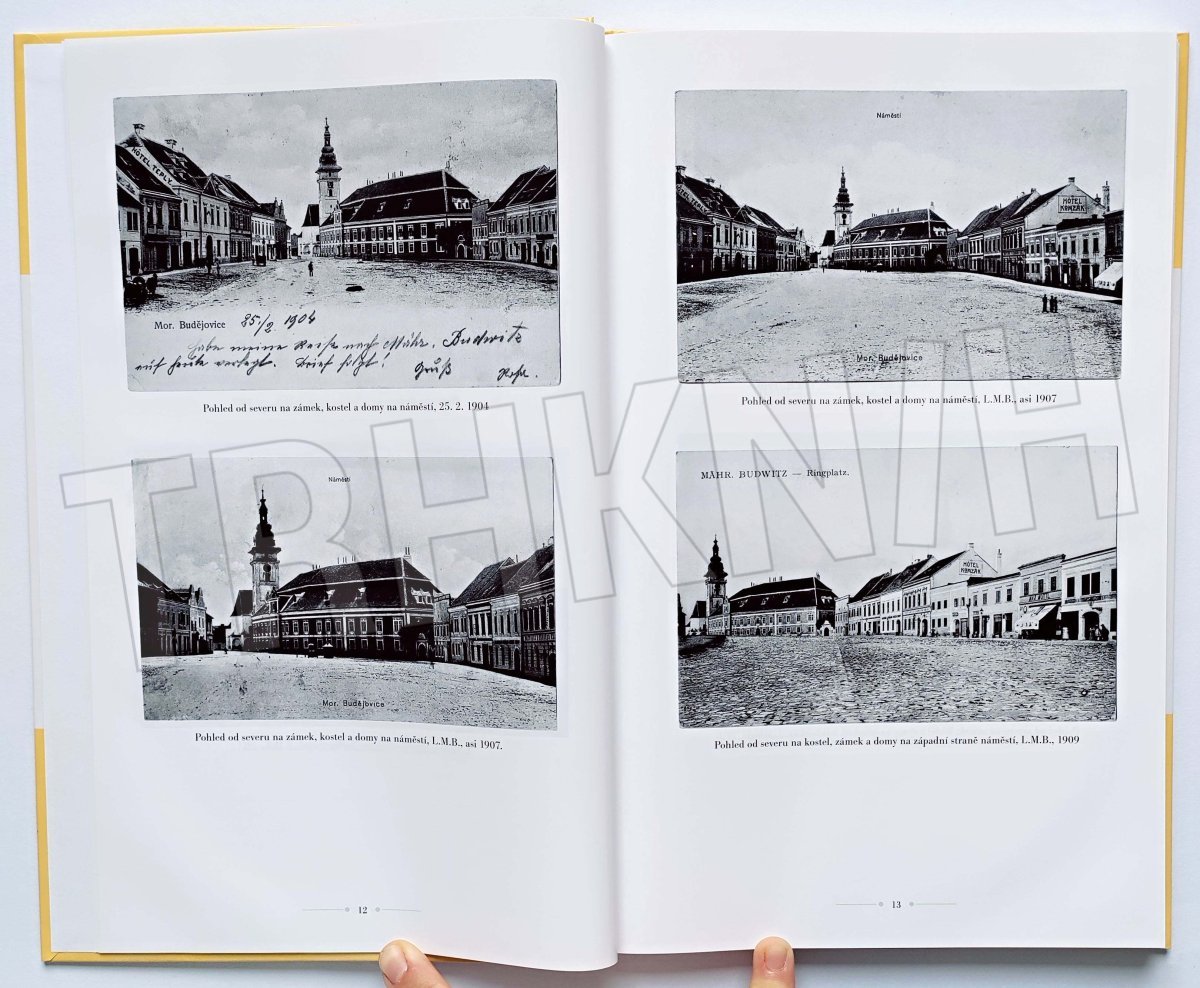 HÔTEL TEPLY
Mor. Budějovice 25/2 1904
habe meine Reise nach Mähr. Budwitz
auf heute verlegt. Brief folgt!
Gruß Rosa.
Pohled od severu na zámek, kostel a domy na náměstí, 25. 2. 1904
Náměstí
Mor. Budějovice
Pohled od severu na zámek, kostel a domy na náměstí, L.M.B., asi 1907.
12
Náměstí
HÔTEL
KOMZÁK
Mor. Budějovice
Pohled od severu na zámek, kostel a domy na náměstí, L.M.B., asi 1907
MÄHR. BUDWITZ — Ringplatz.
HÔTEL
KOMZÁK
Pohled od severu na kostel, zámek a domy na západní straně náměstí, L.M.B., 1909
13
TRHKNIH